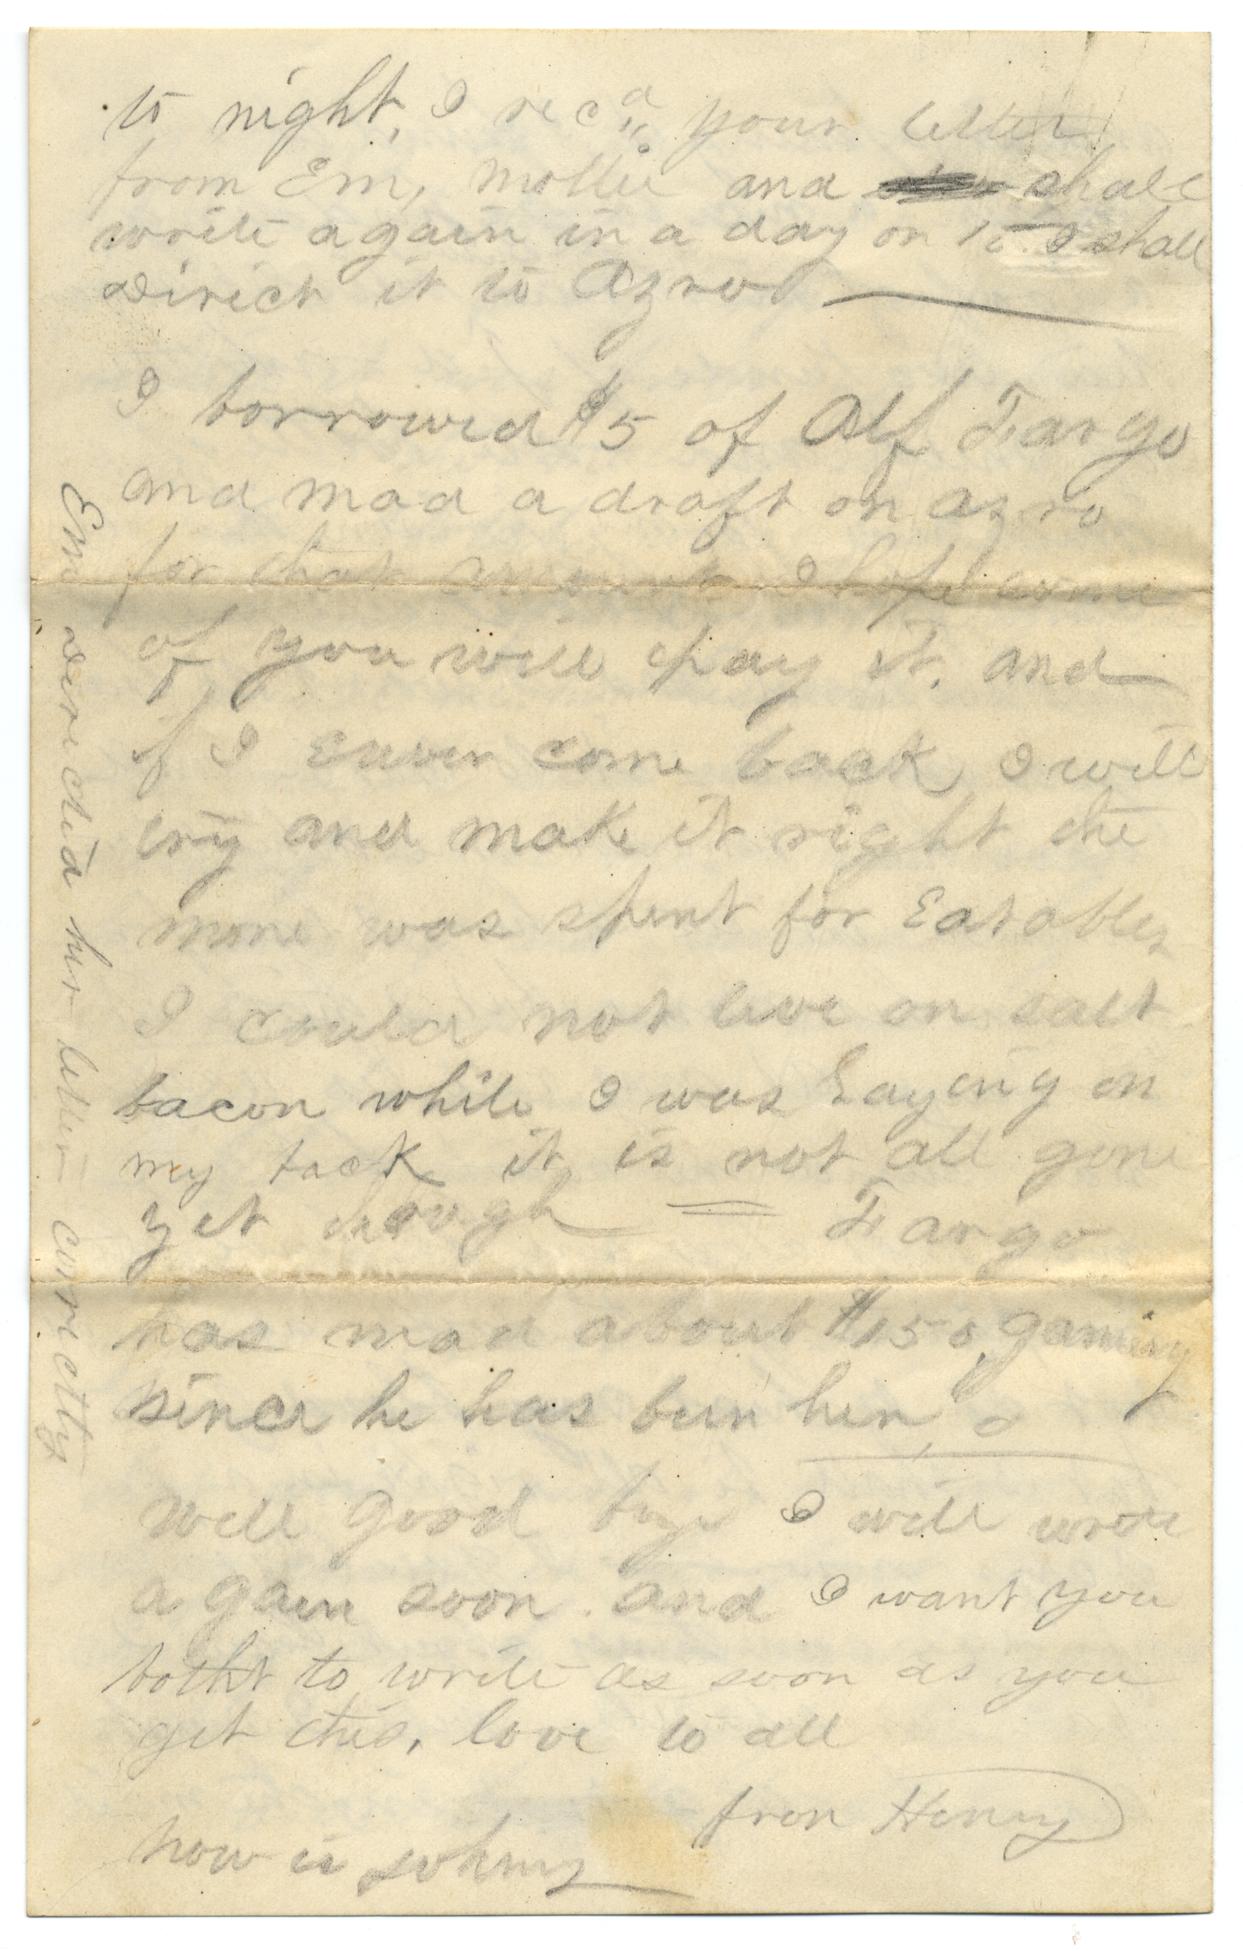 to night, I recd your letter
from Em, Mollie and shall
write again in a day or to I shall
direct it to Azro
I borrowed $5 of Alf Fargo
and mad a draft on azro
for that I hope some
of you will pay it, and
if I ever come back I will
try and make it right the
mone was spent for Eatables
I could not live on salt
bacon while I was Laying on
my back it is not all gone
yet though = Fargo
has mad about $150, gaming
since he has been here,
well good bye I will write
a gain soon and I want you
botht to write as soon as you
get this, love to all
from Henry
how is Johny
Em directed her letter correctly